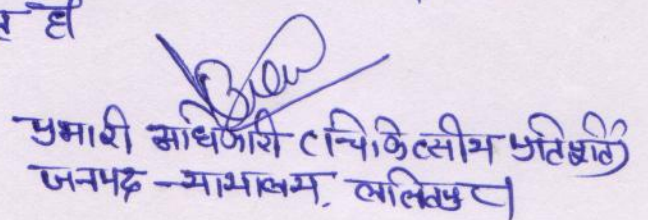 त है
प्रभारी अधिकारी (चिकित्सीय प्रतिपूर्ति)
जनपद न्यायालय, ललितपुर।